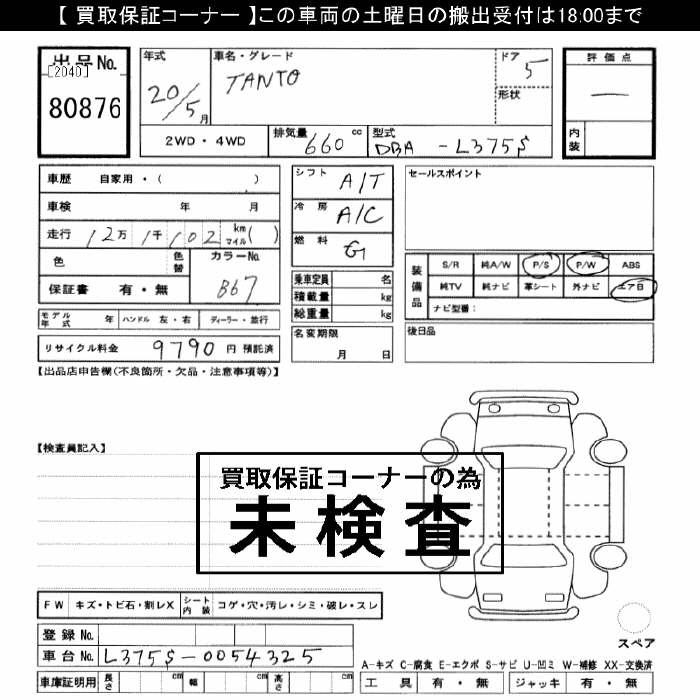 【 買取保証コーナー 】この車両の土曜日の搬出受付は18:00まで
出品No.
[2040]
80876
年式
20/5月
車名・グレード
TANTO
ドア
5
形状
評価点
—
内装
2WD・4WD
排気量
660 cc
型式
DBA - L375S
車歴 自家用・( )
車検 年 月
走行 12万 1千 102 km マイル( )
色
色替
カラーNo.
B67
保証書 有・無
シフト
A/T
冷房
A/C
燃料
G
セールスポイント
乗車定員 名
積載量 kg
総重量 kg
装備品
S/R 純A/W P/S P/W ABS
純TV 純ナビ 革シート 外ナビ エアB
ナビ型番:
モデル年式 年 ハンドル 左・右 ディーラー・並行
名変期限
月 日
後日品
リサイクル料金 9790 円 預託済
【出品店申告欄(不良箇所・欠品・注意事項等)】
【検査員記入】
買取保証コーナーの為
未検査
FW キズ・トビ石・割レX シート内装 コゲ・穴・汚レ・シミ・破レ・スレ
登録No.
車台No. L375S-0054325
車庫証明用 長さ cm 幅 cm 高さ cm
スペア
A-キズ C-腐食 E-エクボ S-サビ U-凹ミ W-補修 XX-交換済
工具 有・無 ジャッキ 有・無